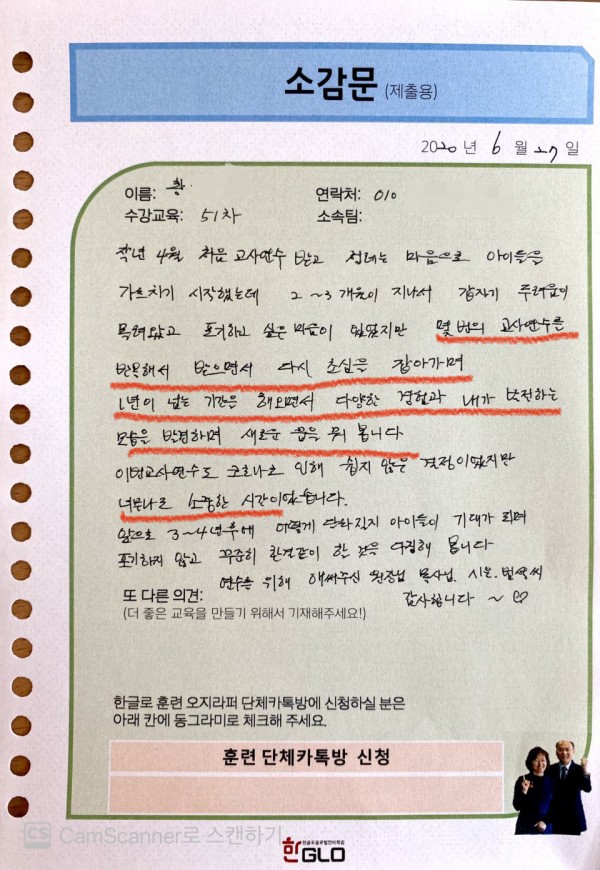 소감문 (제출용)
2020 년 6 월 27 일
이름: 황
연락처: 010
수강교육: 51차
소속팀:
작년 4월 처음 교사연수 받고 설레는 마음으로 아이들을
가르치기 시작했는데 2~3개월이 지나서 갑자기 두려움이
몰려왔고 포기하고 싶은 마음이 있었지만 몇 번의 교사연수를
반복해서 받으면서 다시 초심을 잡아가며
1년이 넘는 기간을 해오면서 다양한 경험과 내가 발전하는
모습을 발견하며 새로운 꿈을 꿔 봅니다
이번교사연수도 코로나로 인해 쉽지 않은 결정이였지만
너무나도 소중한 시간이였습니다.
앞으로 3~4년후에 어떻게 달라질지 아이들이 기대가 되며
포기하지 않고 꾸준히 한결같이 할 것을 다짐해 봅니다
연수를 위해 애써주신 원장님 목사님. 시온.
감사합니다 ~ ♡
또 다른 의견:
(더 좋은 교육을 만들기 위해서 기재해주세요!)
한글로 훈련 오지라퍼 단체카톡방에 신청하실 분은
아래 칸에 동그라미로 체크해 주세요.
훈련 단체카톡방 신청
CS CamScanner로 스캔하기
한GLO